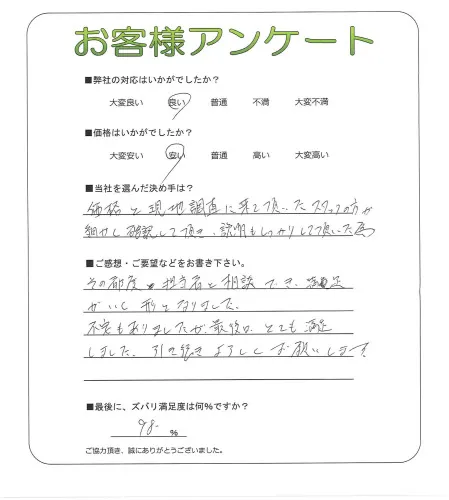 お客様アンケート
■弊社の対応はいかがでしたか?
大変良い 良い 普通 不満 大変不満
■価格はいかがでしたか?
大変安い 安い 普通 高い 大変高い
■当社を選んだ決め手は?
価格と現地調査に来て頂いたスタッフの方が
細かく確認して頂き、説明もしっかりして頂いた為
■ご感想・ご要望などをお書き下さい。
その都度担当者と相談でき、満足
がいく形となりました。
不安もありましたが、最後はとても満足
しました。引き続きよろしくお願いします
■最後に、ズバリ満足度は何%ですか?
98 %
ご協力頂き、誠にありがとうございました。